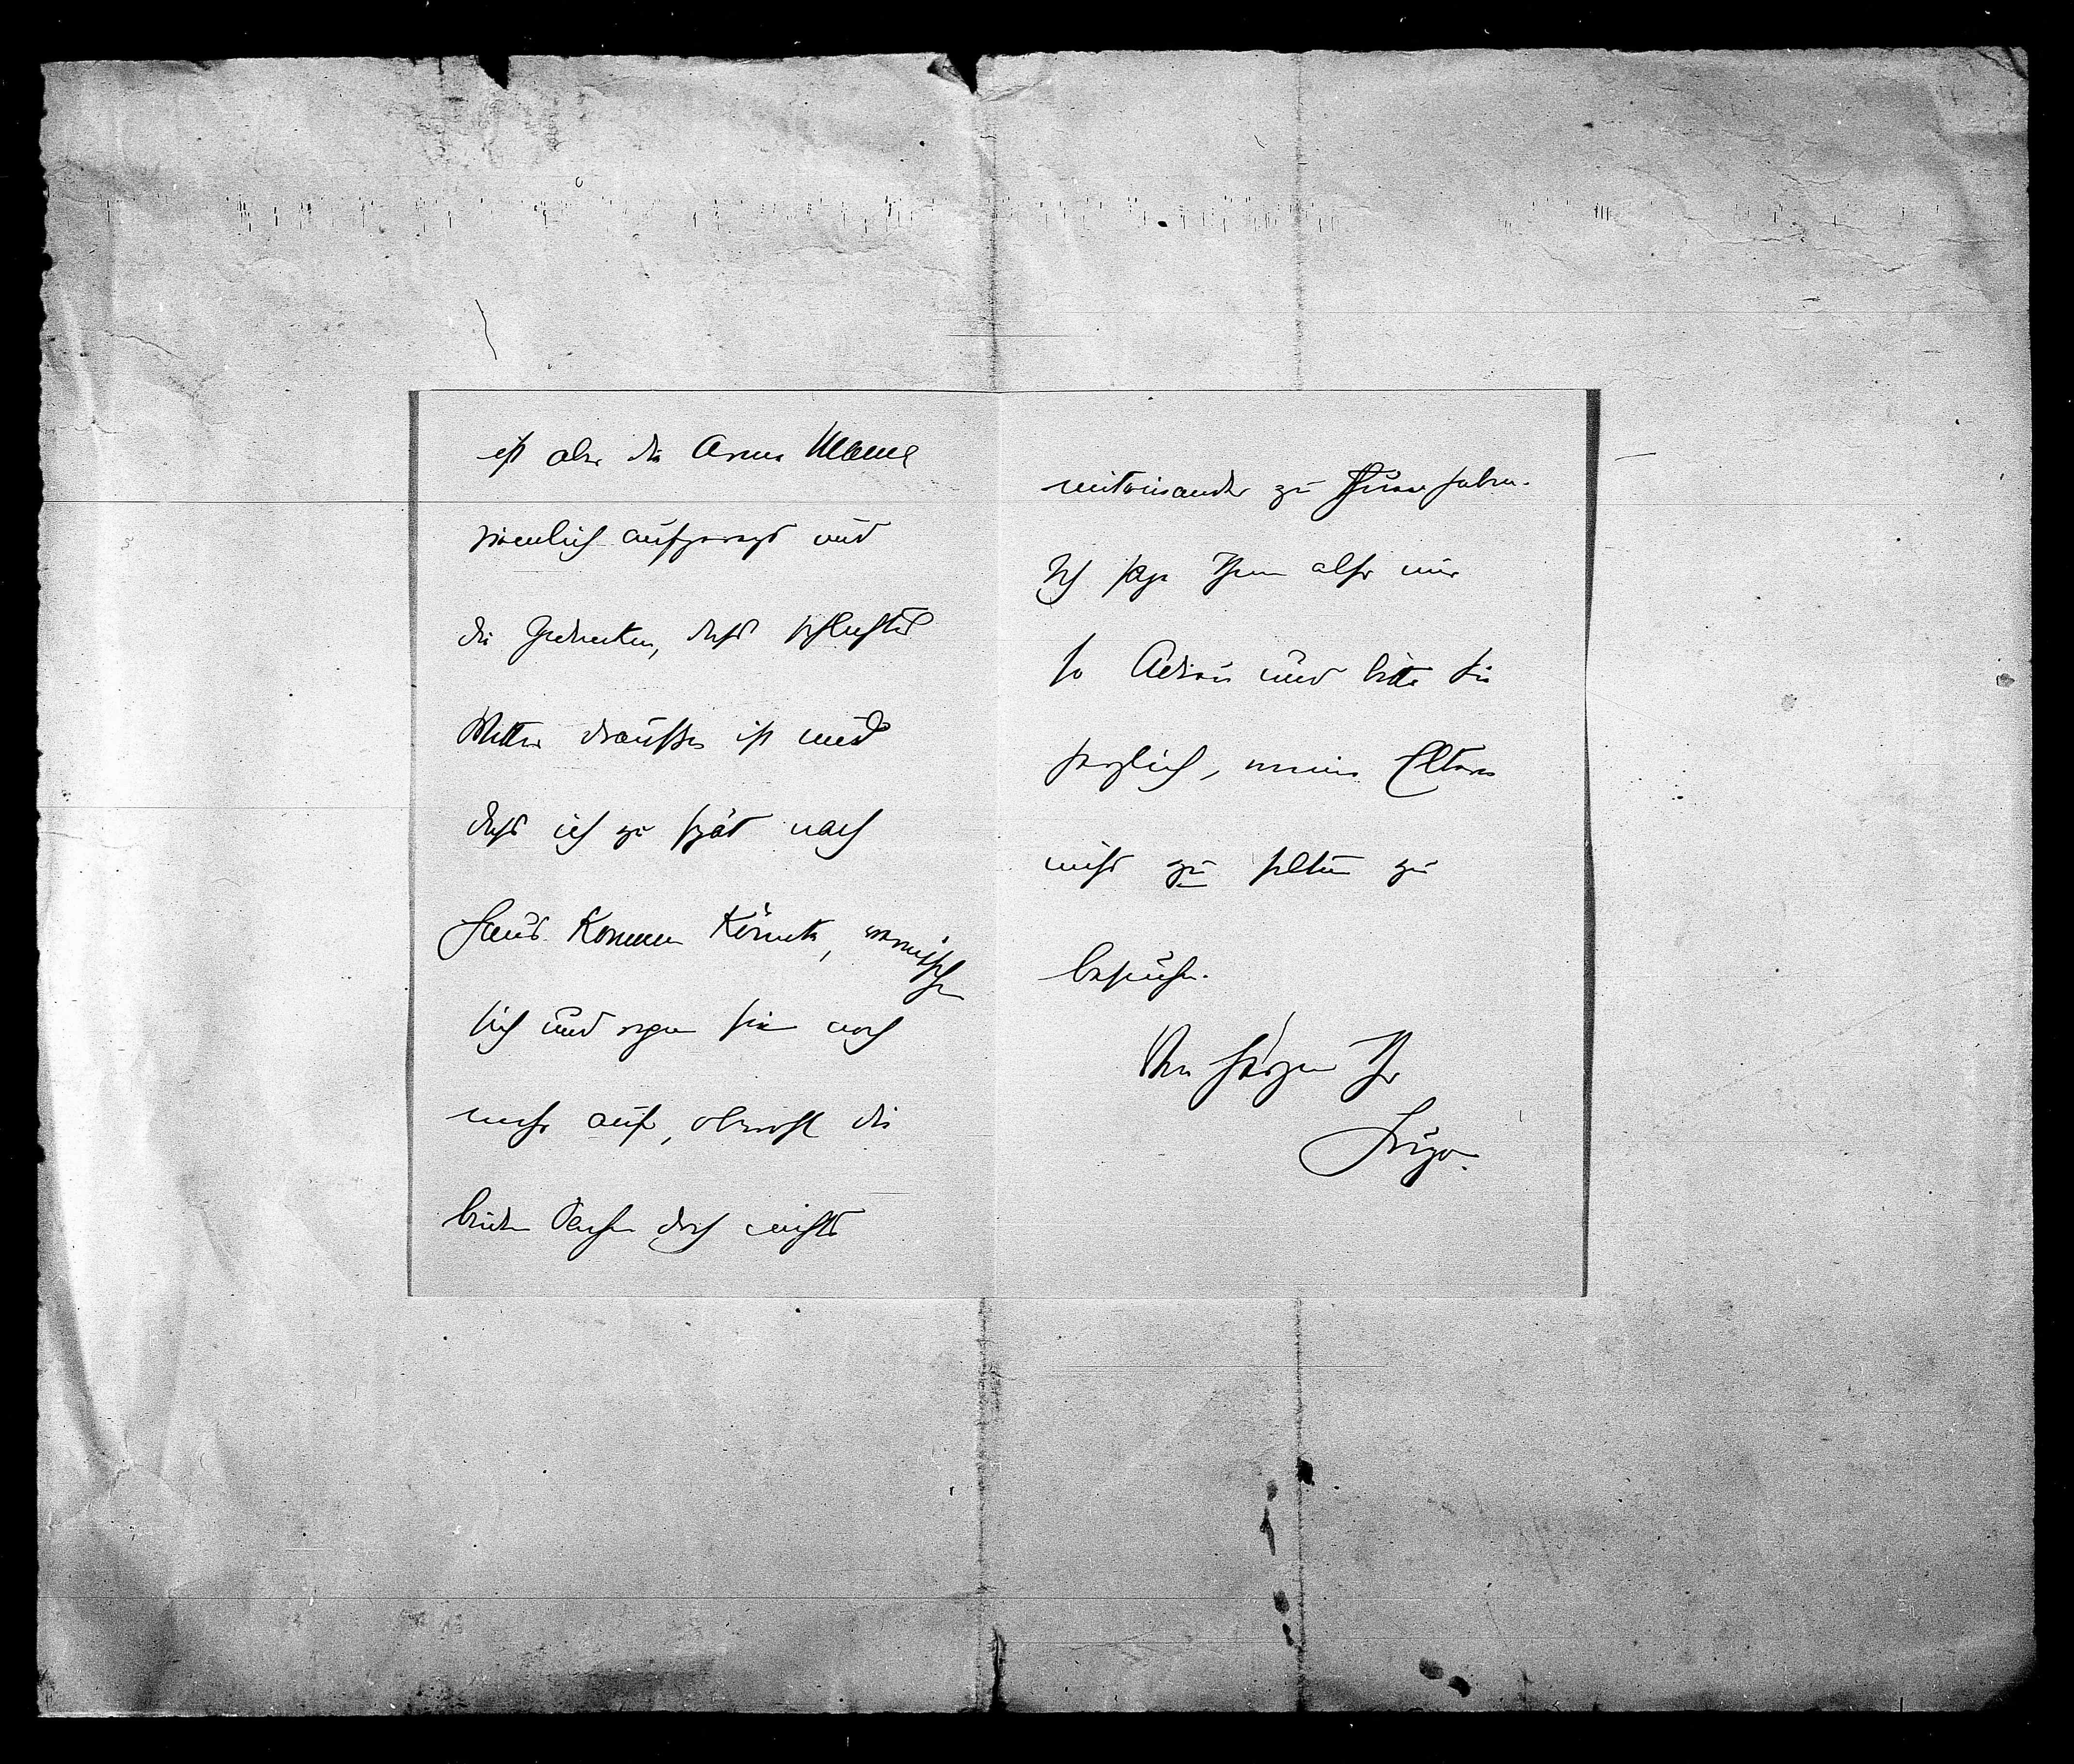 ist aber die arme Mama
ziemlich aufgeregt und
die Gedanken, dass schlechtes
Wetter draussen ist und
dass ich zu spät nach
Haus kommen könnte, vermischen
sich und regen sie noch
mehr auf, obwohl die
beiden Sachen doch nichts
miteinander zu thun haben.
Ich sage Ihnen also nur
so Adieu und bitte Sie
herzlich, meine Eltern
nicht zu selten zu
besuchen.
Von Herzen Ihr
Hugo.